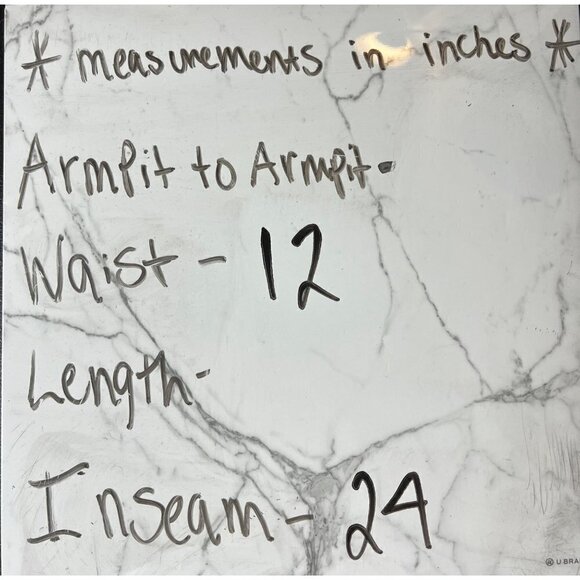 * measurements in inches *
Armpit to Armpit-
Waist - 12
Length-
Inseam - 24